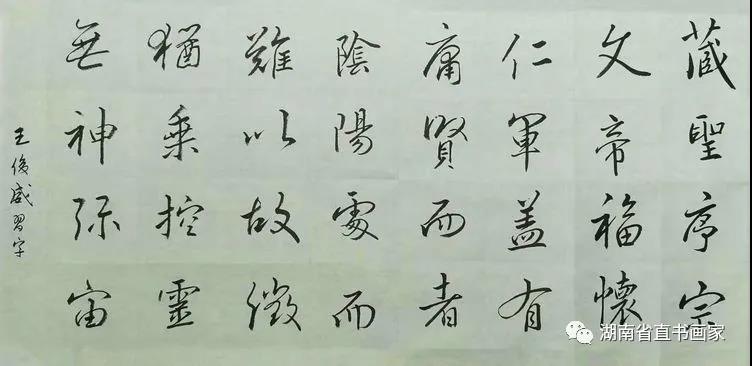 藏聖序宗
文帝福懷
仁軍盖有
庸賢而者
陰陽處而
難以故徵
猶乘控靈
無神弥宙
王俊威習字
湖南省直书画家